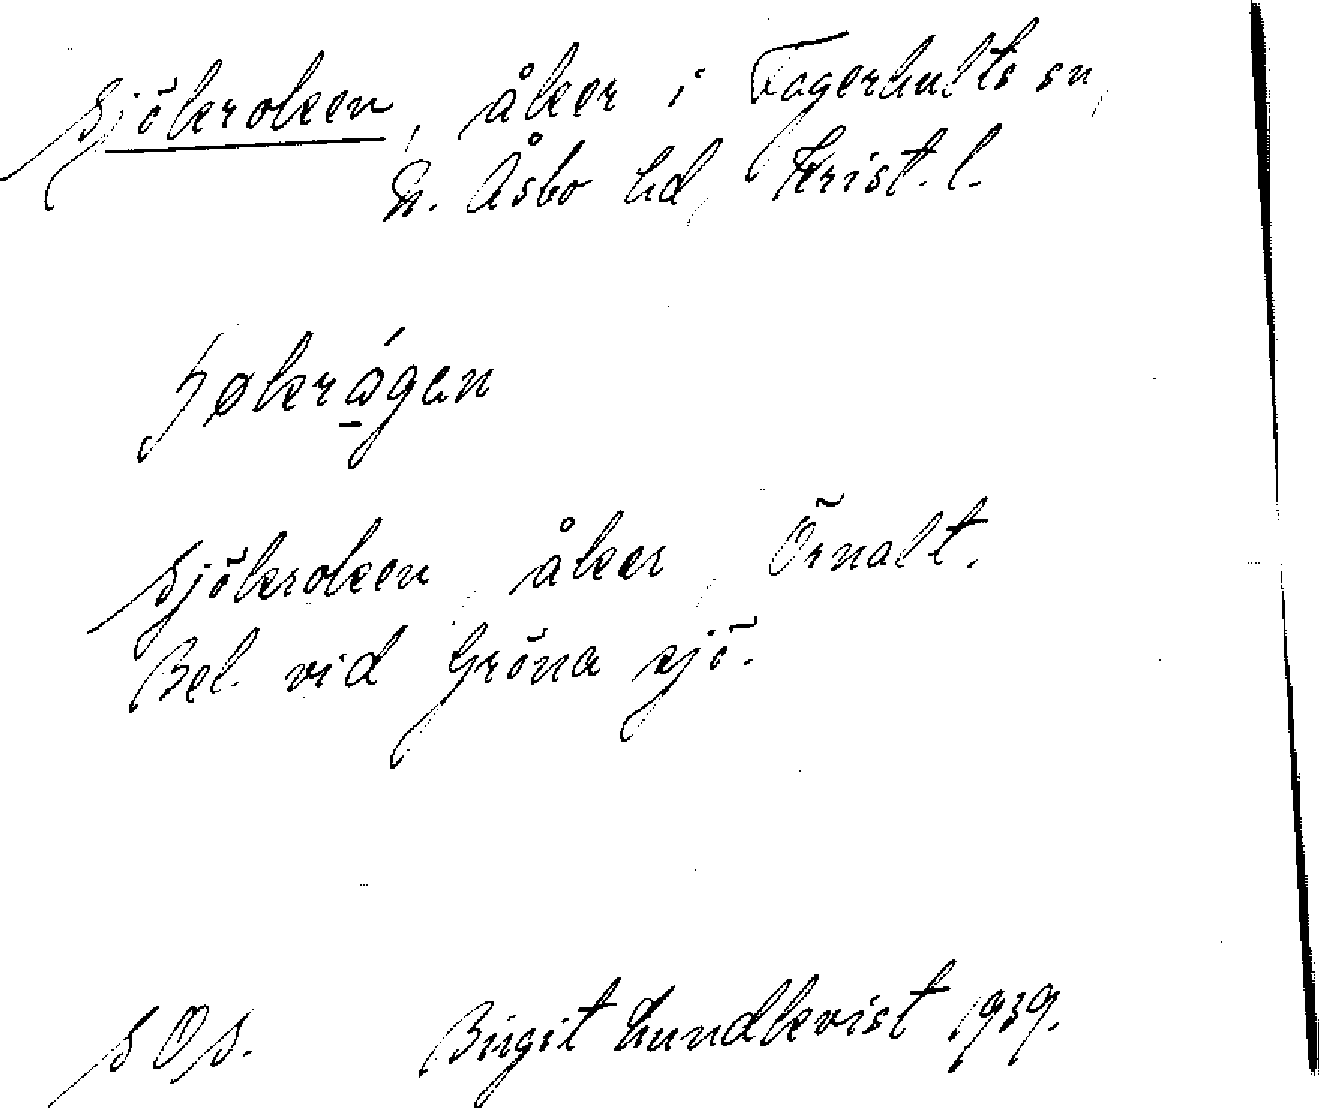 Sjökroken, åker i Fagerhults sn,
N. Åsbo hd, Krist. l.
Sjökroken, åker, Örnalt.
Bel. vid Gröna sjö.
SOS. Birgit Lundkvist 1939.